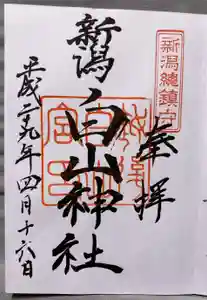 新潟總鎮守
奉拝
新潟白山神社
平成二十九年四月十六日